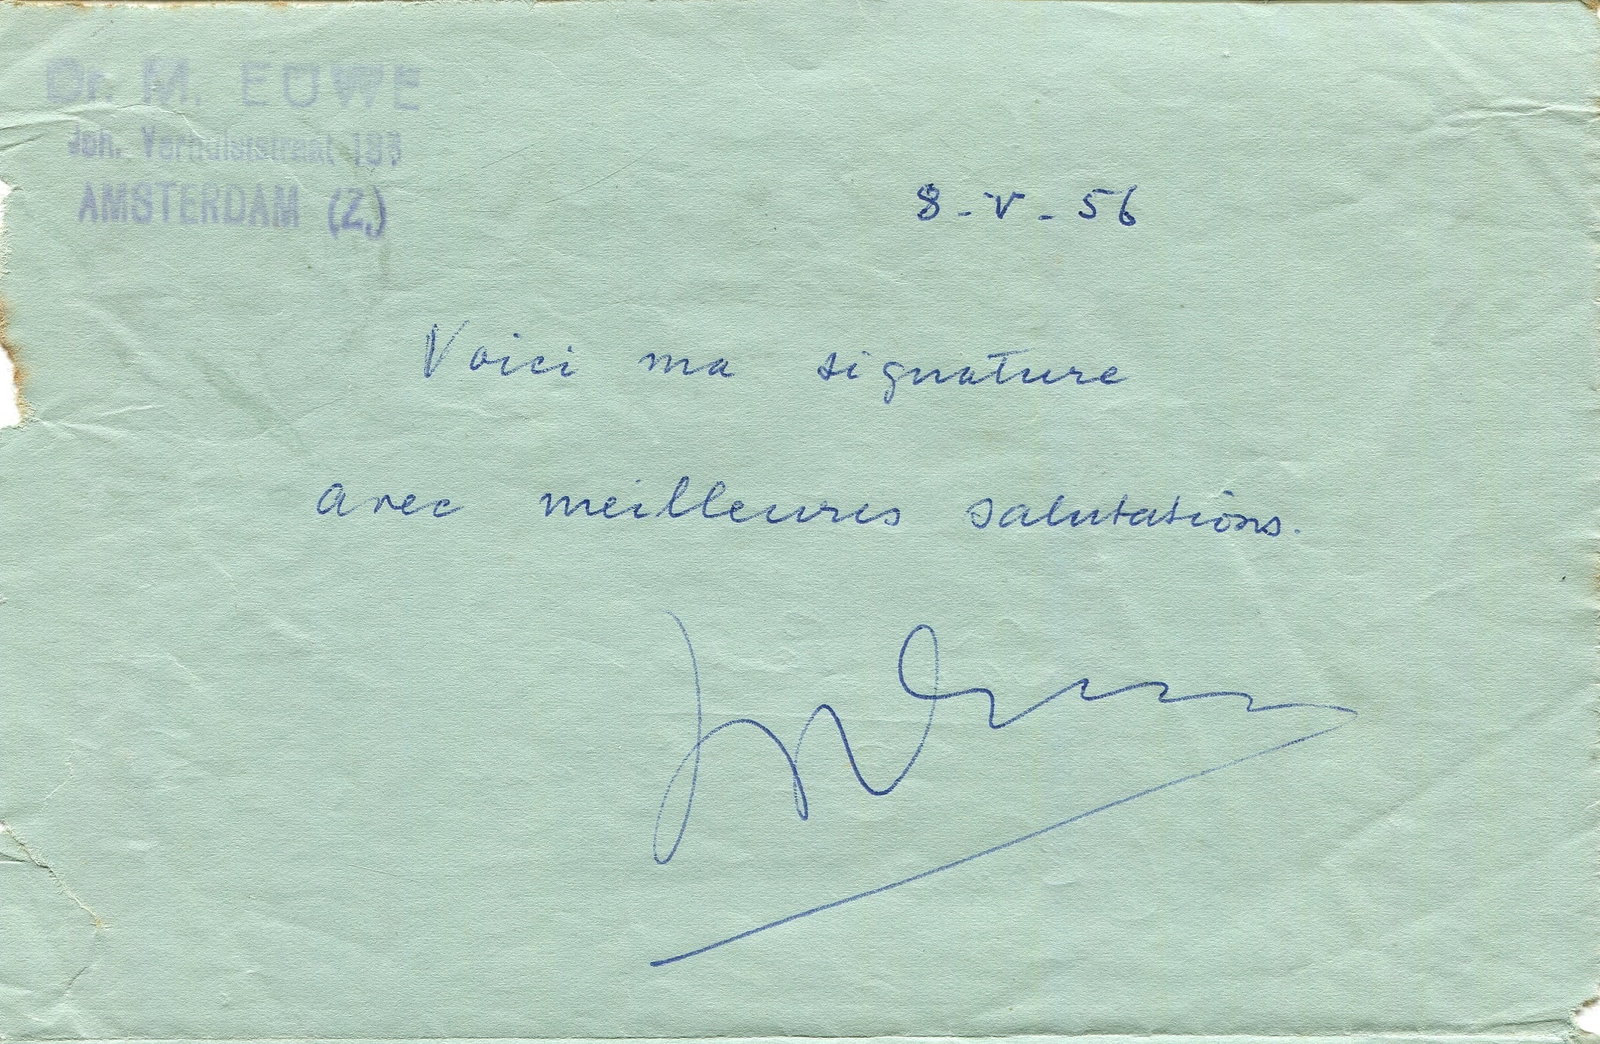 Dr. M. EUWE
Joh. Verhulststraat
AMSTERDAM (Z.)
8-V-56
Voici ma signature
avec meilleures salutations.